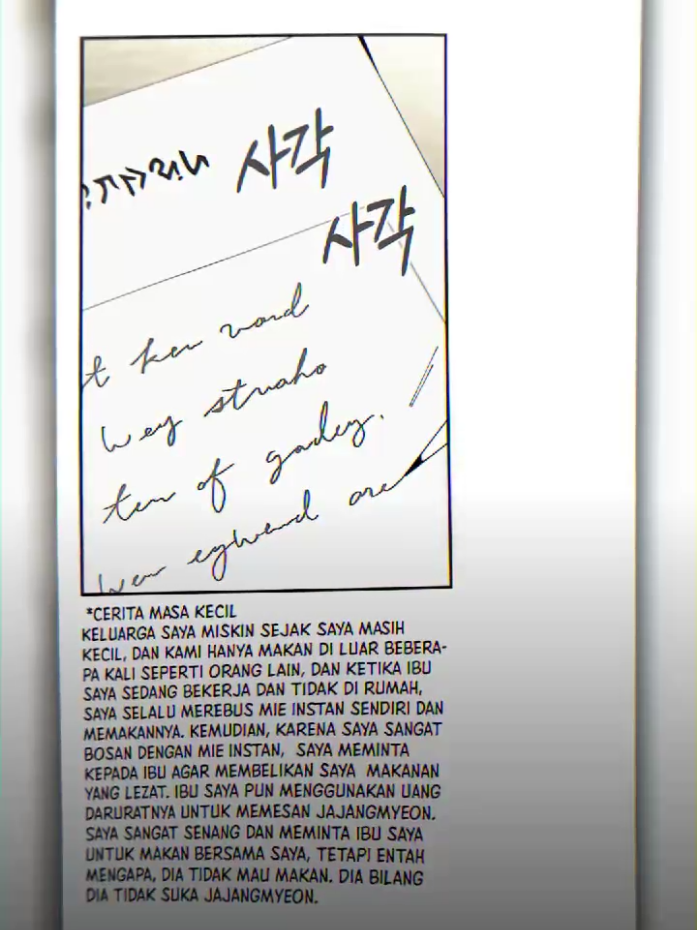 사각
사각
ten of
are
*CERITA MASA KECIL
KELUARGA SAYA MISKIN SEJAK SAYA MASIH
KECIL, DAN KAMI HANYA MAKAN DI LUAR BEBERA-
PA KALI SEPERTI ORANG LAIN, DAN KETIKA IBU
SAYA SEDANG BEKERJA DAN TIDAK DI RUMAH,
SAYA SELALU MEREBUS MIE INSTAN SENDIRI DAN
MEMAKANNYA. KEMUDIAN, KARENA SAYA SANGAT
BOSAN DENGAN MIE INSTAN, SAYA MEMINTA
KEPADA IBU AGAR MEMBELIKAN SAYA MAKANAN
YANG LEZAT. IBU SAYA PUN MENGGUNAKAN UANG
DARURATNYA UNTUK MEMESAN JAJANGMYEON.
SAYA SANGAT SENANG DAN MEMINTA IBU SAYA
UNTUK MAKAN BERSAMA SAYA, TETAPI ENTAH
MENGAPA, DIA TIDAK MAU MAKAN. DIA BILANG
DIA TIDAK SUKA JAJANGMYEON.